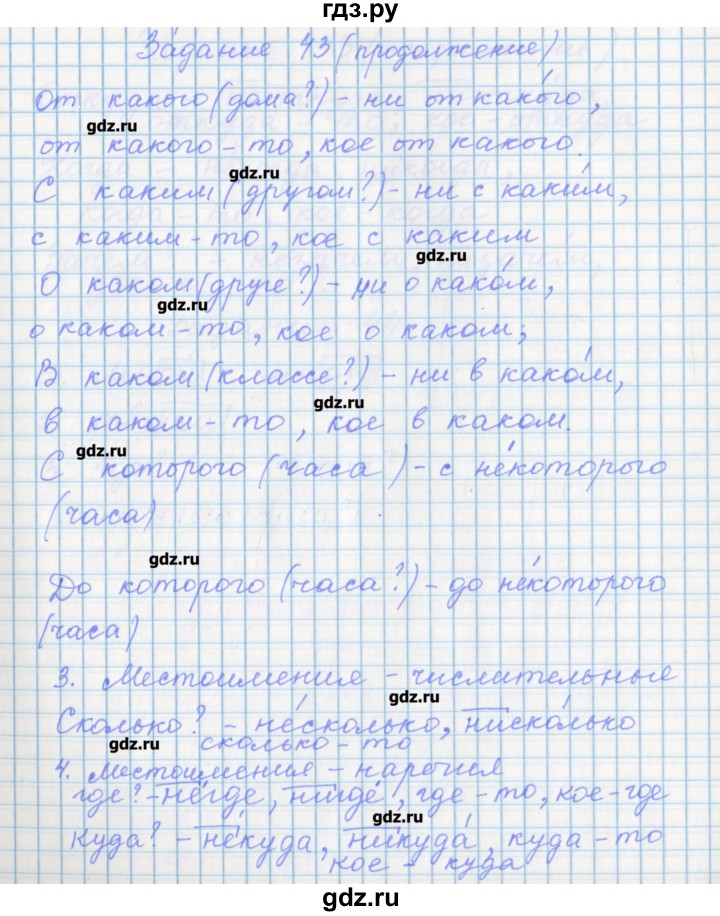 гдз.ру
Задание 43 (продолжение)
От какого (дома?) – ни от како́го,
gdz.ru
от какого-то, кое от какого.
gdz.ru
С каким (другом?) – ни с каки́м,
с каким-то, кое с каким
gdz.ru
О каком (друге?) – ни о како́м,
gdz.ru
о каком-то, кое о каком;
В каком (классе?) – ни в како́м,
gdz.ru
в каком-то, кое в каком.
gdz.ru
С которого (часа) – с не́которого
(часа)
gdz.ru
До которого (часа?) – до не́которого
(часа)
3. Местоимения – числительные
gdz.ru
Сколько? – не́сколько, ниско́лько
gdz.ru
сколько-то
4. Местоимения – наречия
где? – не́где, нигде́, где-то, кое-где
gdz.ru
Куда? – не́куда, никуда́, куда-то
кое-куда
gdz.ru